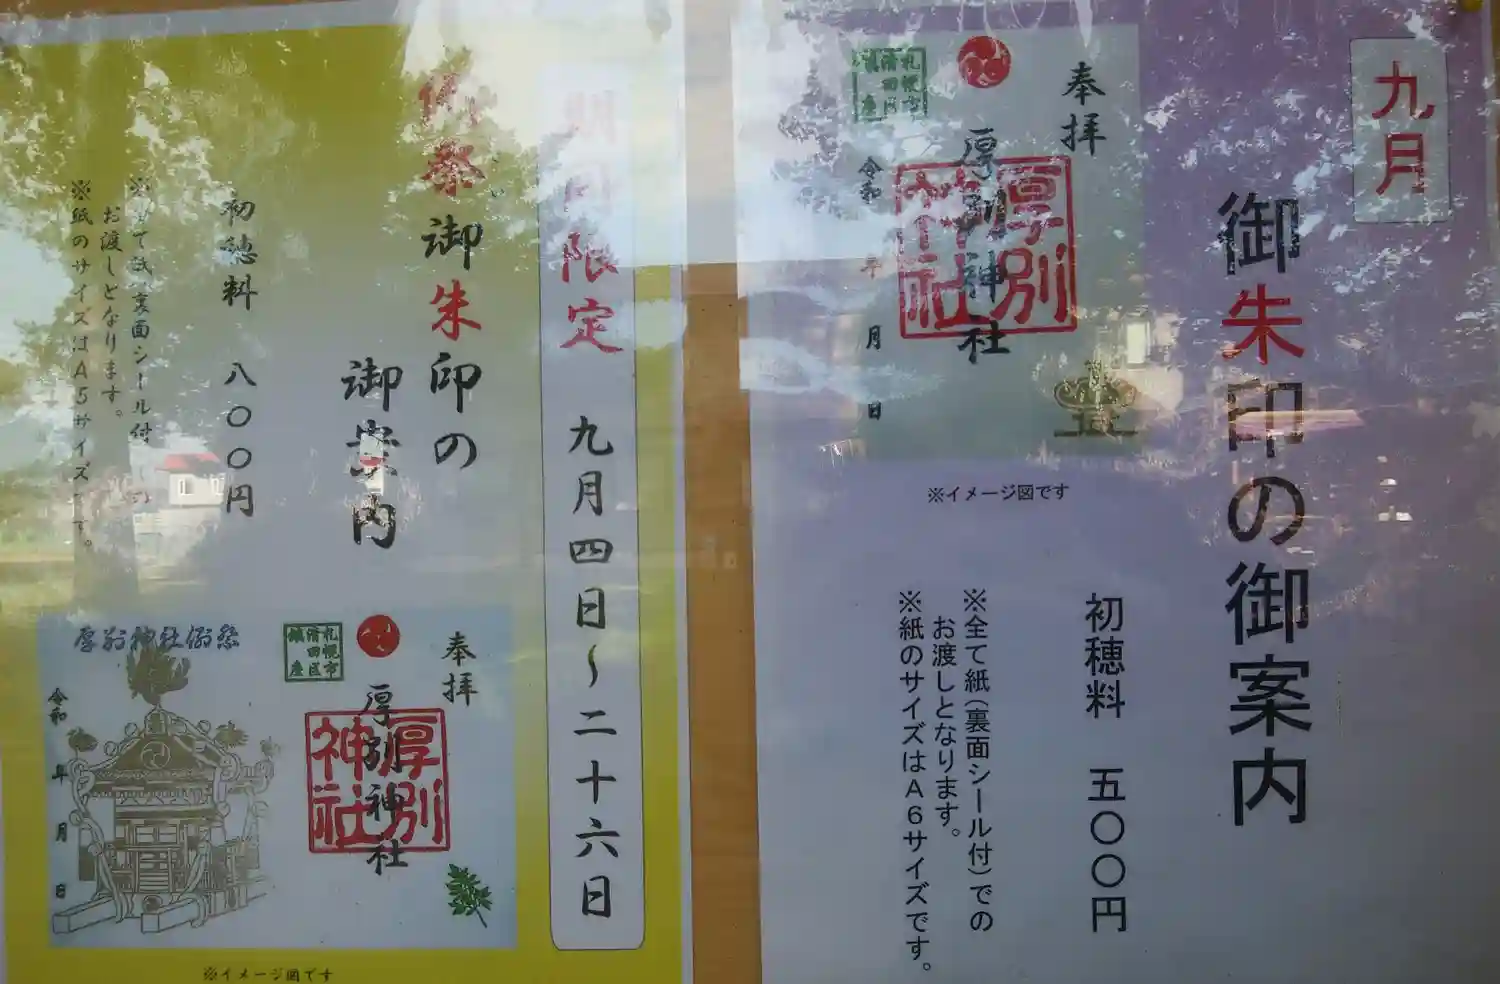 九月
御朱印の御案内
奉拝
厚別神社
厚別
神社
札幌市
清田区
鎮座
令和 年 月 日
※イメージ図です
初穂料 五〇〇円
※全て紙（裏面シール付）での
お渡しとなります。
※紙のサイズはA6サイズです。
期間限定 九月四日～二十六日
例祭御朱印の
御案内
初穂料 八〇〇円
※全て紙 裏面シール付 の
お渡しとなります。
※紙のサイズはA5サイズです。
奉拝
厚別神社
厚別
神社
札幌市
清田区
鎮座
厚別神社例祭
令和 年 月 日
※イメージ図です